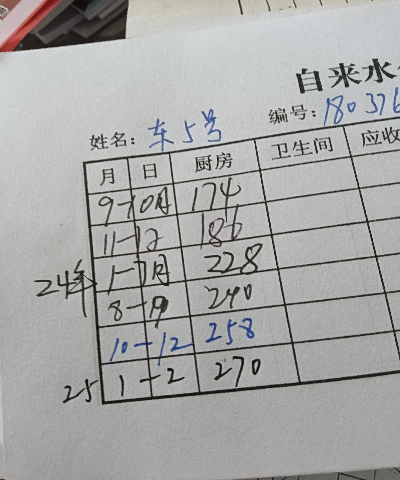 自来水
编号: 180376
姓名: 东5号
月 日 厨房 卫生间 应收
9-10月 174
11-12 186
24年 1-7月 228
8-9 240
10-12 258
25 1-2 270